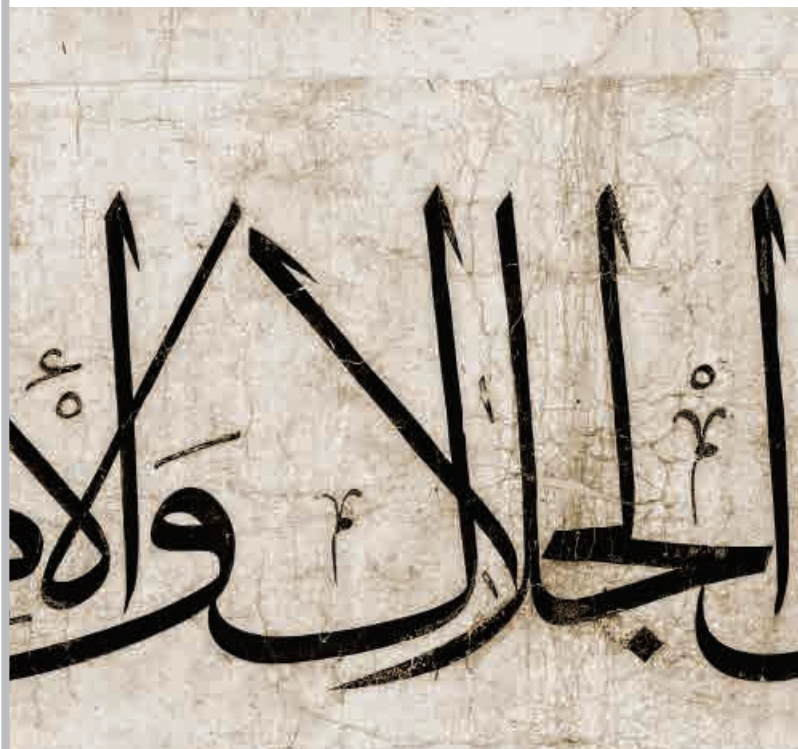 الجلال وَالْأ